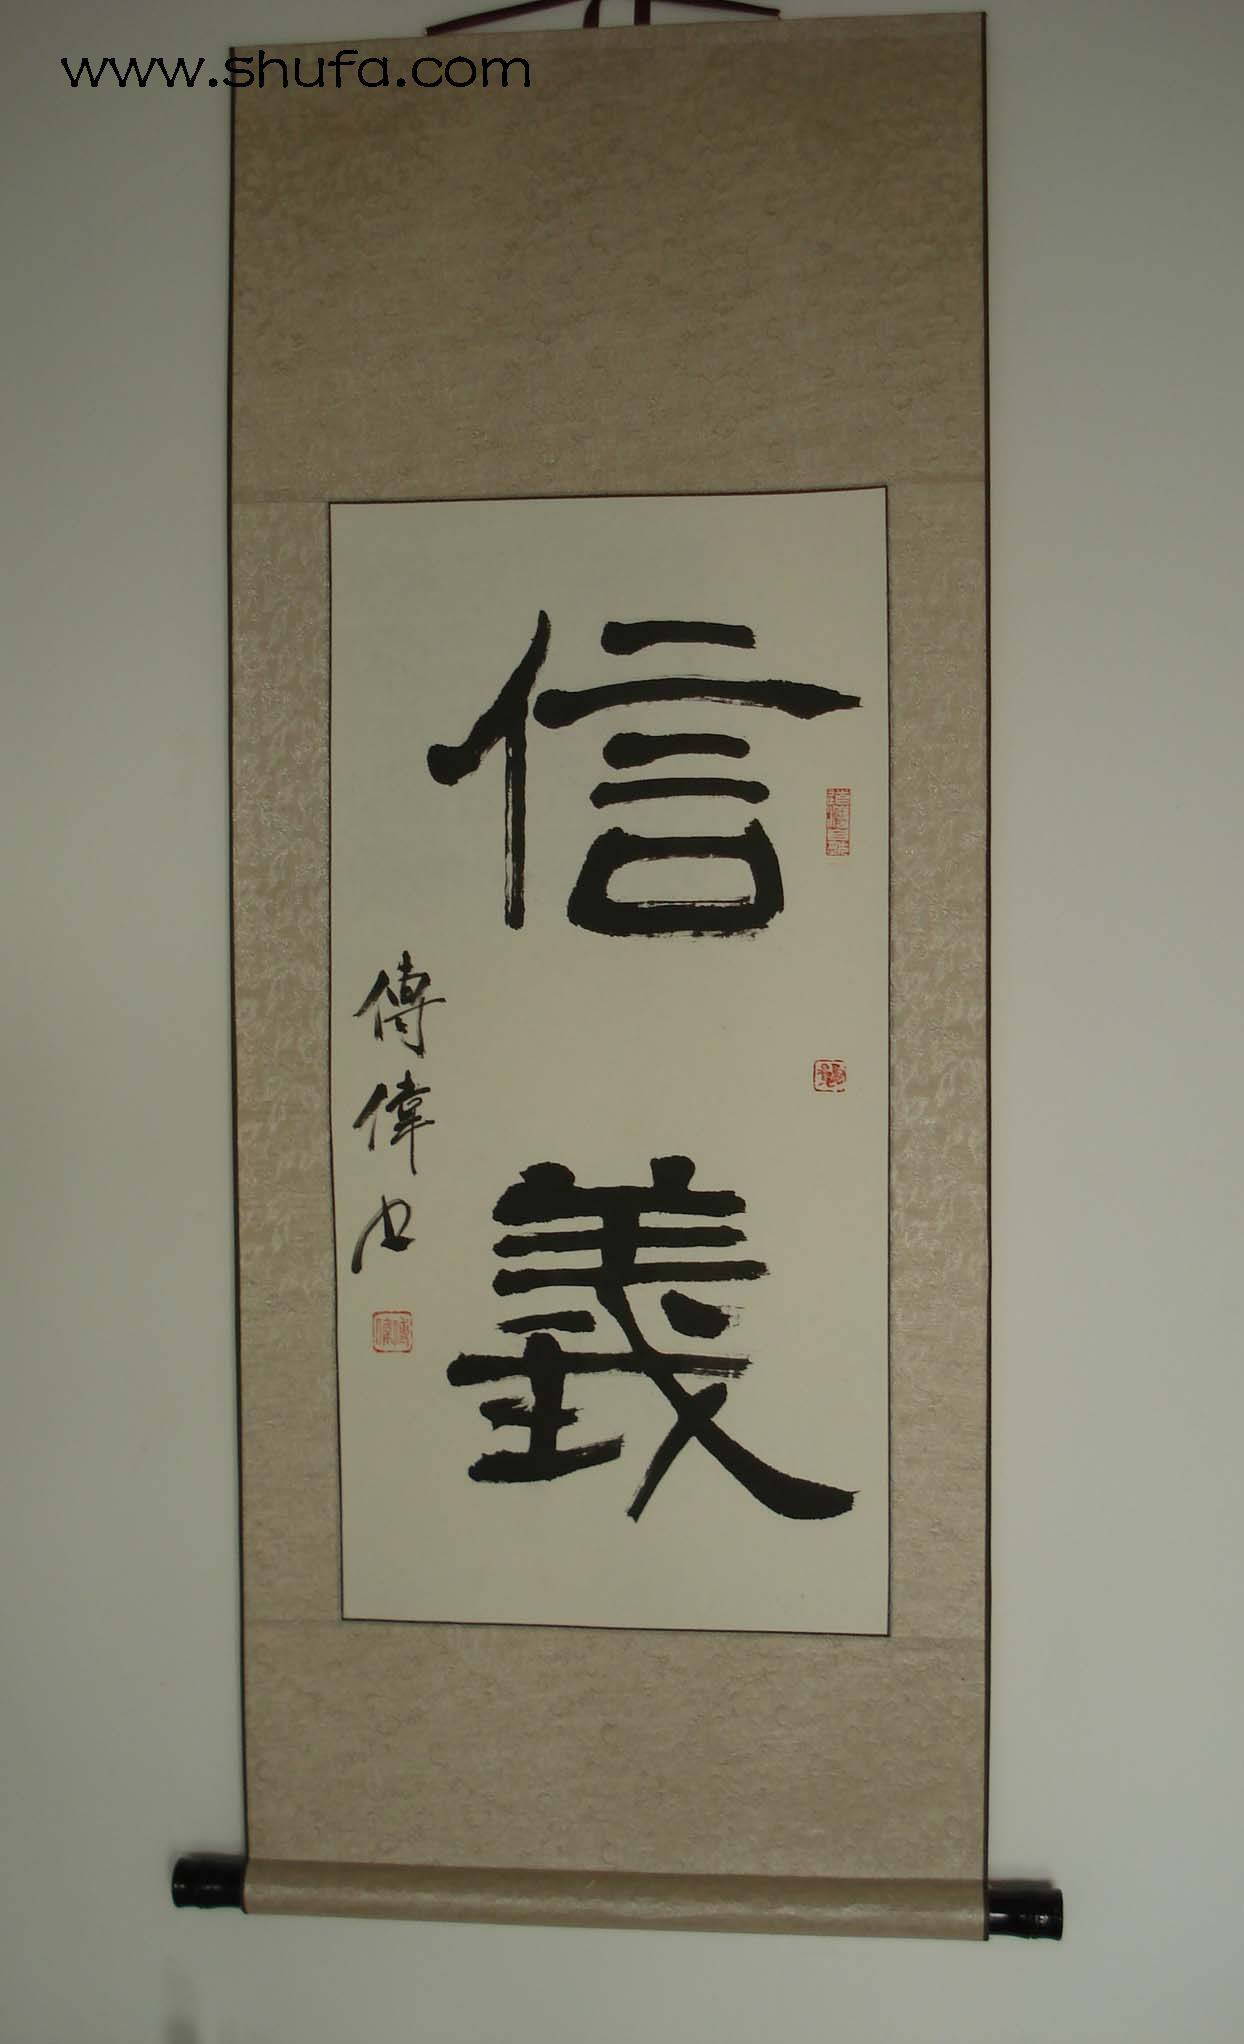 www.shufa.com
信義
傅偉书